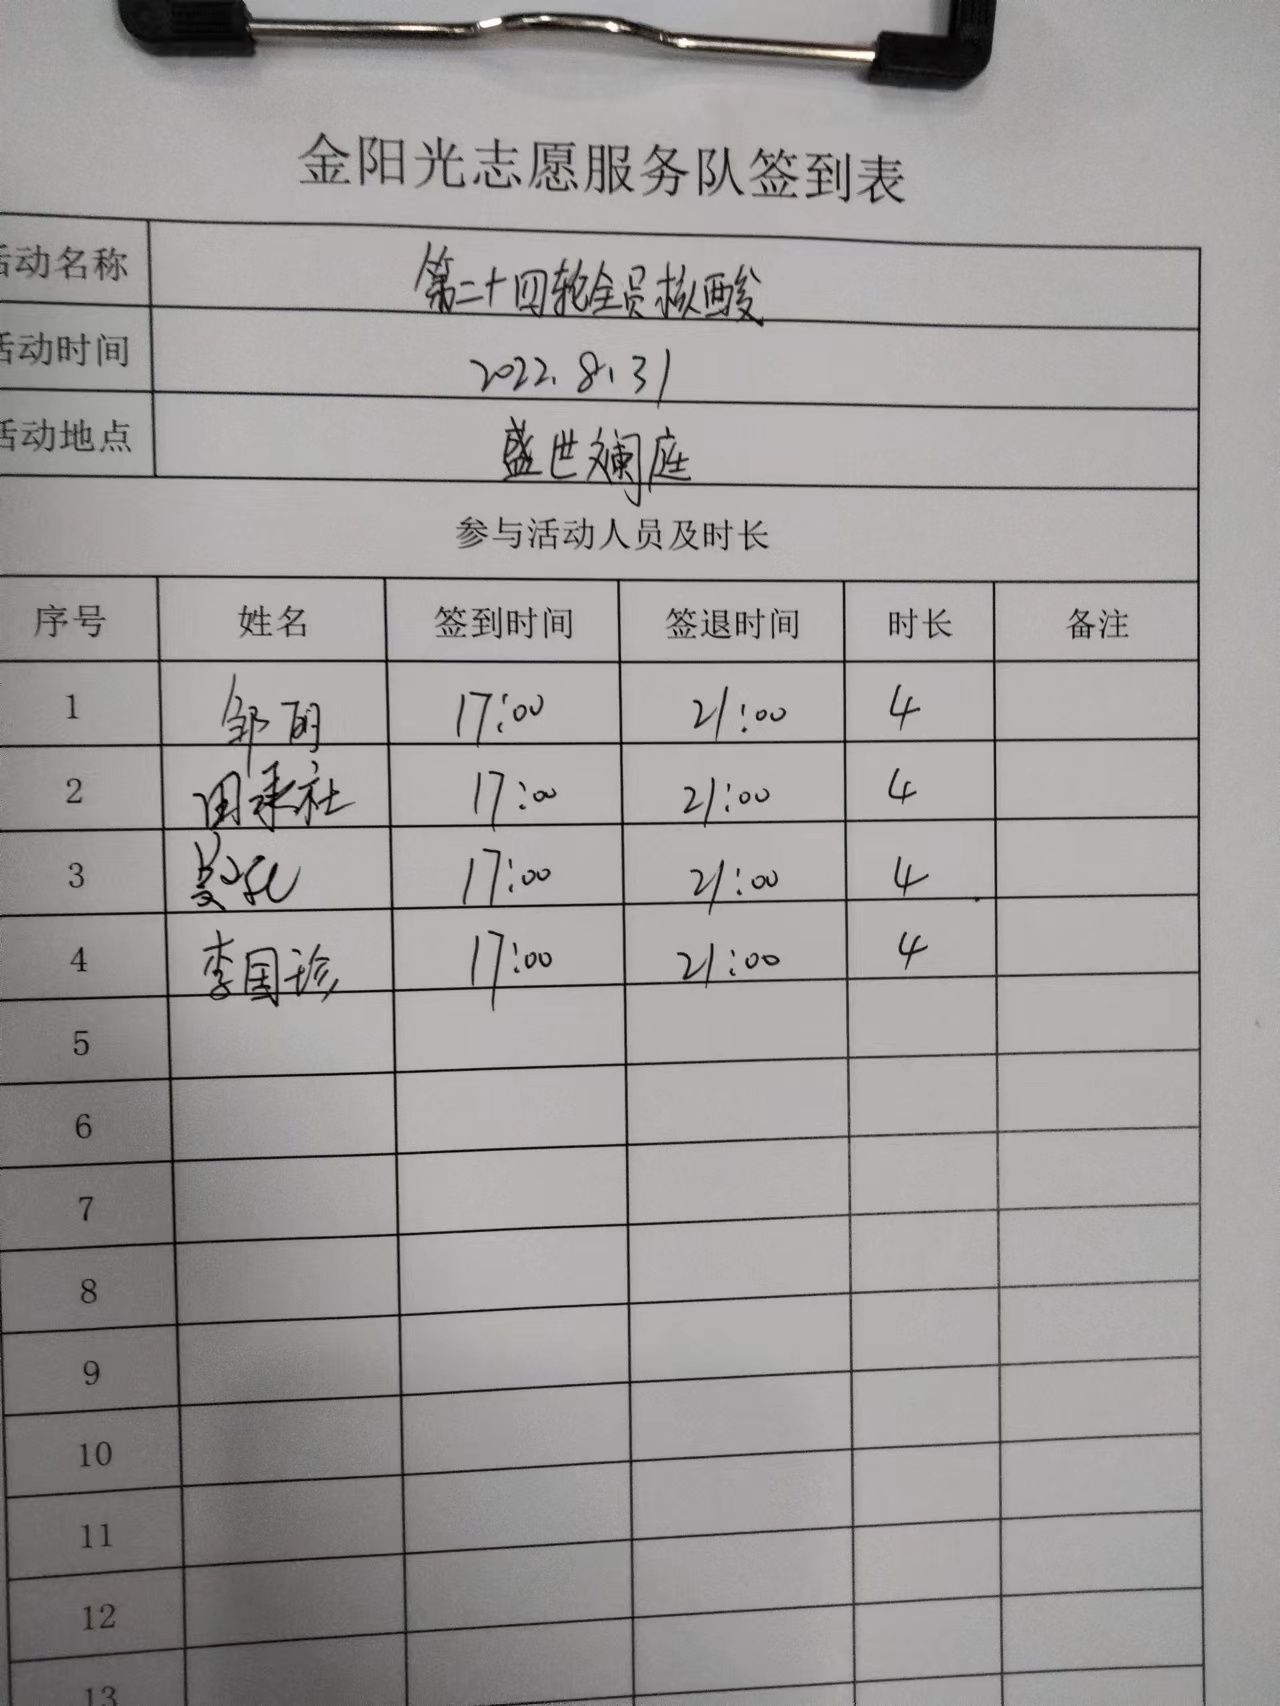 金阳光志愿服务队签到表
活动名称 第二十四轮全员核酸
活动时间 2022.8.31
活动地点 盛世斓庭
参与活动人员及时长
序号 姓名 签到时间 签退时间 时长 备注
1 邹丽 17:00 21:00 4
2 田承社 17:00 21:00 4
3 17:00 21:00 4
4 李国珍 17:00 21:00 4
5
6
7
8
9
10
11
12
13